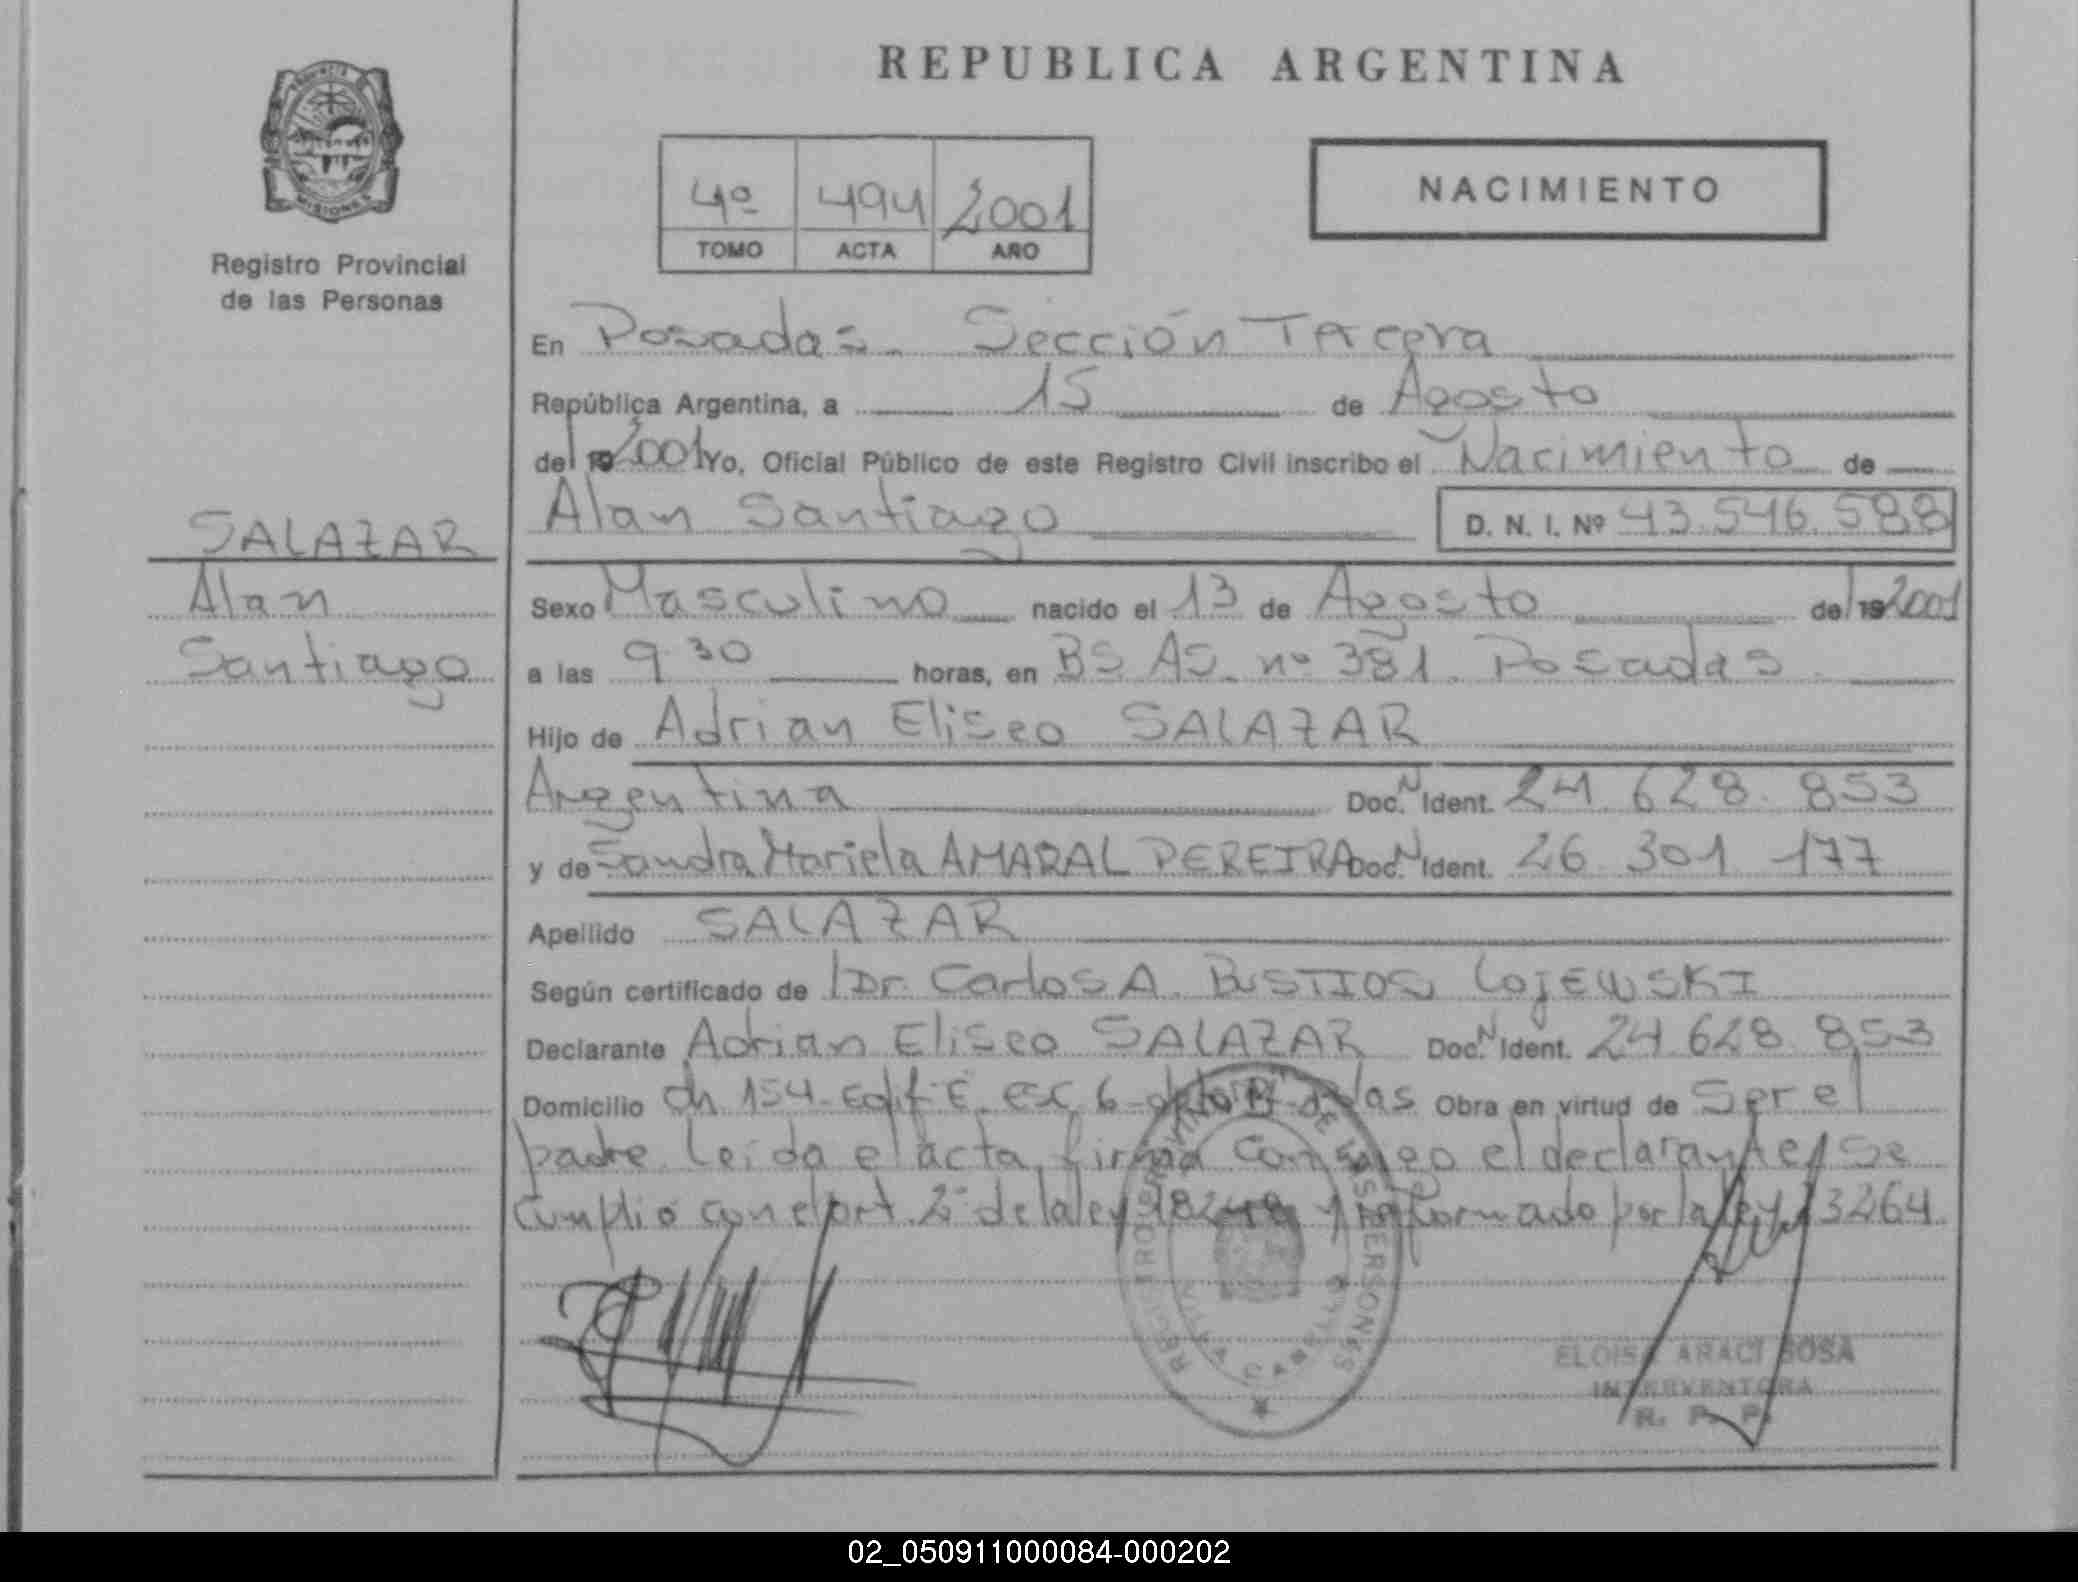 REPUBLICA ARGENTINA
PROVINCIA
MISIONES
Registro Provincial
de las Personas
4º 494 2001
TOMO ACTA AÑO
NACIMIENTO
En Posadas. Sección Tercera
República Argentina, a 15 de Agosto
del 19 2001 Yo, Oficial Público de este Registro Civil inscribo el Nacimiento de
Alan Santiago D. N. I. Nº 43.546.588
SALAZAR
Alan
Santiago
Sexo Masculino nacido el 13 de Agosto del 19 2001
a las 9 30 horas, en BS AS. nº 381. Posadas
Hijo de Adrian Eliseo SALAZAR
Argentina Doc. N Ident. 24.628.853
y de Sandra Mariela AMARAL PEREIRA Doc. N Ident. 26.301.177
Apellido SALAZAR
Según certificado de Dr. Carlos A. BUSTIOS LOJEWSKI
Declarante Adrian Eliseo SALAZAR Doc. N Ident. 24.628.853
Domicilio ch 154-Edif E. esc 6- Obra en virtud de Ser el
padre. Leida el acta, firma conmigo el declarante, Se
cumplio con el art. 2º de la ley 18248 y reformado por la ley 23264.
REGISTRO PROVINCIAL DE LAS PERSONAS
ELOISA ARACI SOSA
INTERVENTORA
R. P. P.
02_050911000084-000202